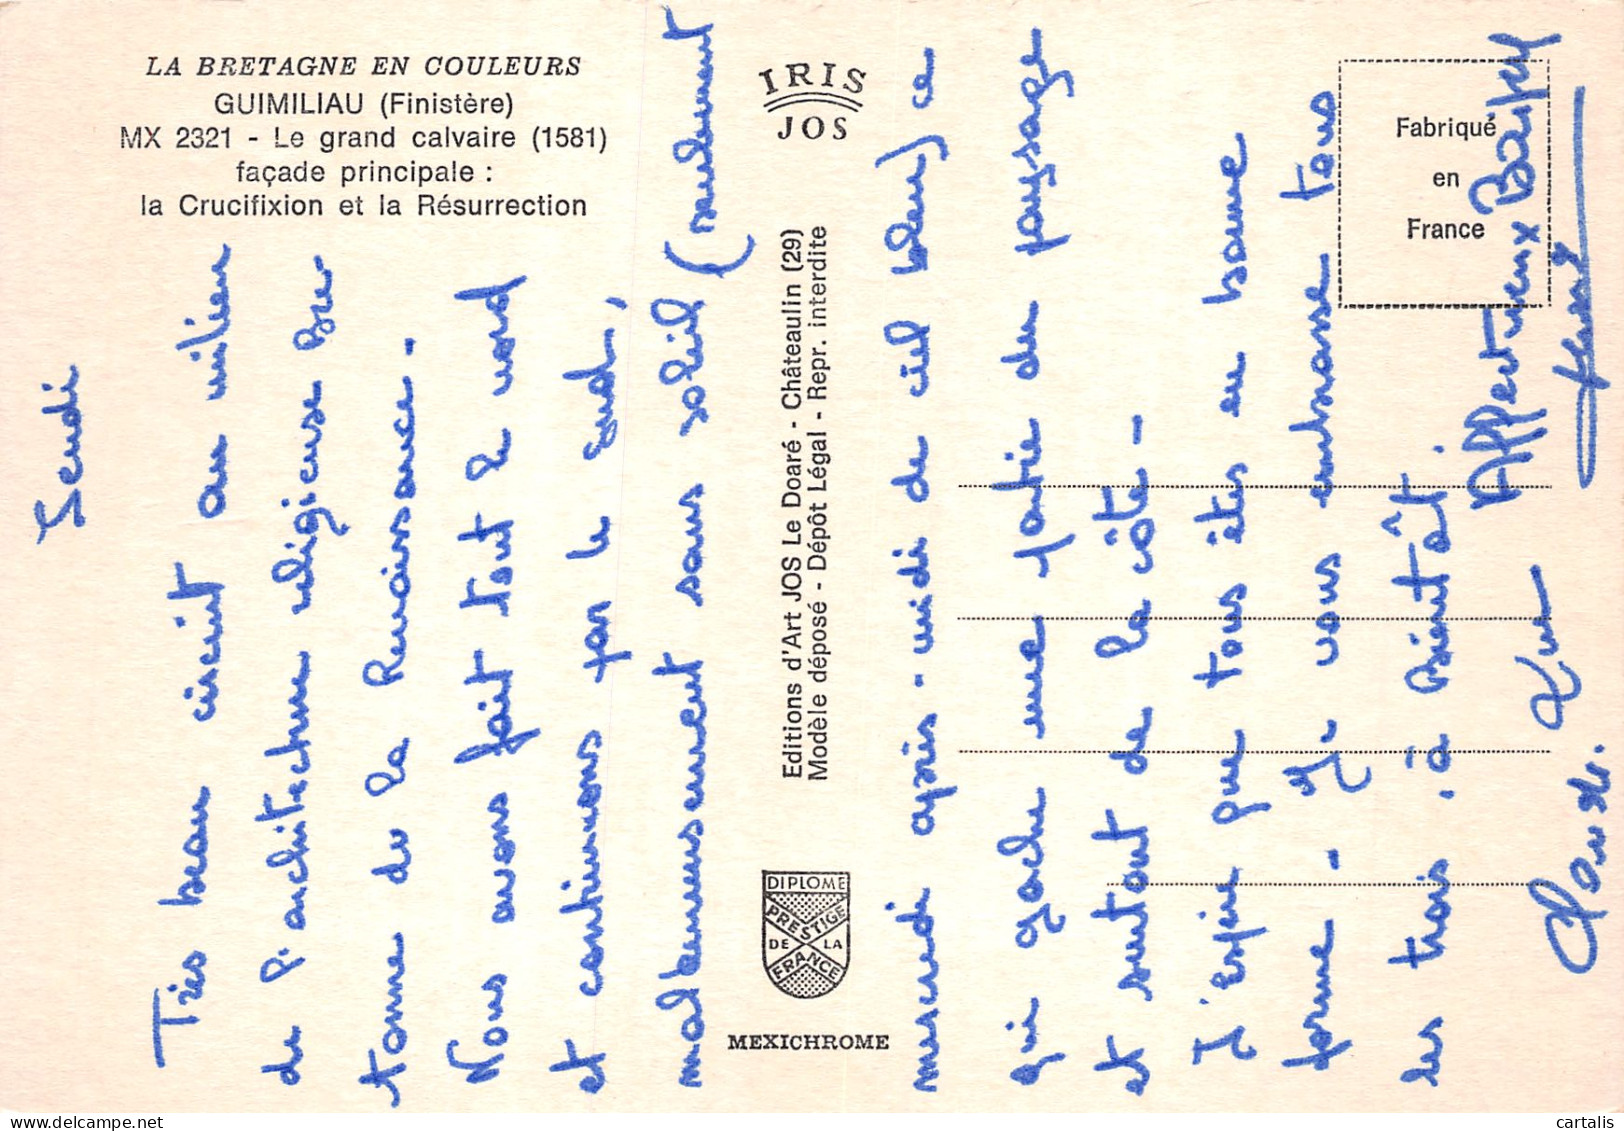 LA BRETAGNE EN COULEURS
GUIMILIAU (Finistère)
MX 2321 - Le grand calvaire (1581)
façade principale :
la Crucifixion et la Résurrection
IRIS
JOS
Fabriqué
en
France
Editions d'Art JOS Le Doaré - Châteaulin (29)
Modèle déposé - Dépôt Légal - Repr. interdite
DIPLOME
PRESTIGE
DE LA
FRANCE
MEXICHROME
Jeudi
Très beau circuit au milieu
de l'architecture religieuse Bre-
tonne de la Renaissance -
Nous avons fait tout le nord
et continuons par le sud,
malheureusement sans soleil (seulement
mercredi après-midi de ciel bleu) ce
qui gache une partie du paysage
et surtout de la côte -
J'espère que tous êtes en bonne
forme - Je vous embrasse tous
les trois, à Bientôt.
Affectueux Baisers
cartalis